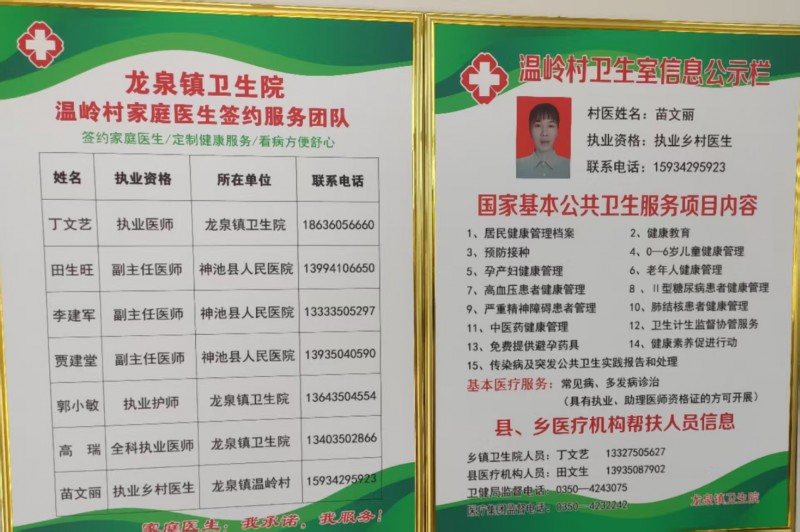 龙泉镇卫生院
温岭村家庭医生签约服务团队
签约家庭医生/定制健康服务/看病方便舒心
姓名 执业资格 所在单位 联系电话
丁文艺 执业医师 龙泉镇卫生院 18636056660
田生旺 副主任医师 神池县人民医院 13994106650
李建军 副主任医师 神池县人民医院 13333505297
贾建堂 副主任医师 神池县人民医院 13935040590
郭小敏 执业护师 龙泉镇卫生院 13643504554
高 瑞 全科执业医师 龙泉镇卫生院 13403502866
苗文丽 执业乡村医生 龙泉镇温岭村 15934295923
家庭医生：我承诺、我服务！
温岭村卫生室信息公示栏
村医姓名：苗文丽
执业资格：执业乡村医生
联系电话：15934295923
国家基本公共卫生服务项目内容
1、居民健康管理档案 2、健康教育
3、预防接种 4、0—6岁儿童健康管理
5、孕产妇健康管理 6、老年人健康管理
7、高血压患者健康管理 8、II型糖尿病患者健康管理
9、严重精神障碍患者管理 10、肺结核患者健康管理
11、中医药健康管理 12、卫生计生监督协管服务
13、免费提供避孕药具 14、健康素养促进行动
15、传染病及突发公共卫生实践报告和处理
基本医疗服务：常见病、多发病诊治
（具有执业、助理医师资格证的方可开展）
县、乡医疗机构帮扶人员信息
乡镇卫生院人员：丁文艺 13327505627
县医疗机构人员：田文生 13935087902
卫健局监督电话 0350—4243075
医疗集团监督电话：0350—4232242
龙泉镇卫生院